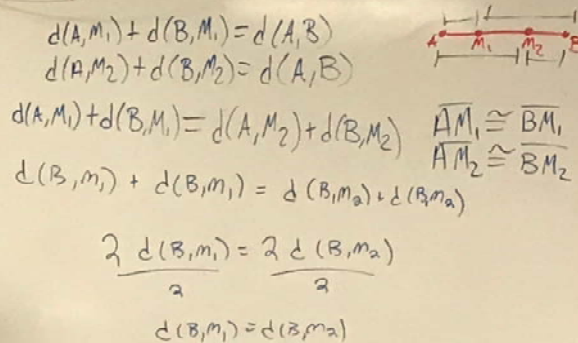 d(A,M₁)+d(B,M₁)=d(A,B)
d(A,M₂)+d(B,M₂)=d(A,B)
A M₁ M₂ B
d(A,M₁)+d(B,M₁)=d(A,M₂)+d(B,M₂)
A̅M̅₁ ≅ B̅M̅₁
A̅M̅₂ ≅ B̅M̅₂
d(B,m₁) + d(B,m₁) = d(B,m₂)+d(B,m₂)
2 d(B,m₁) = 2 d(B,m₂)
2 2
d(B,m₁)=d(B,m₂)